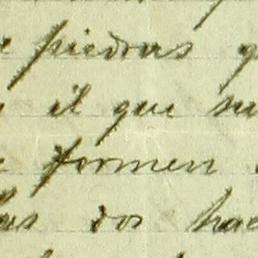 piedras
il que su
formen
las dos hac